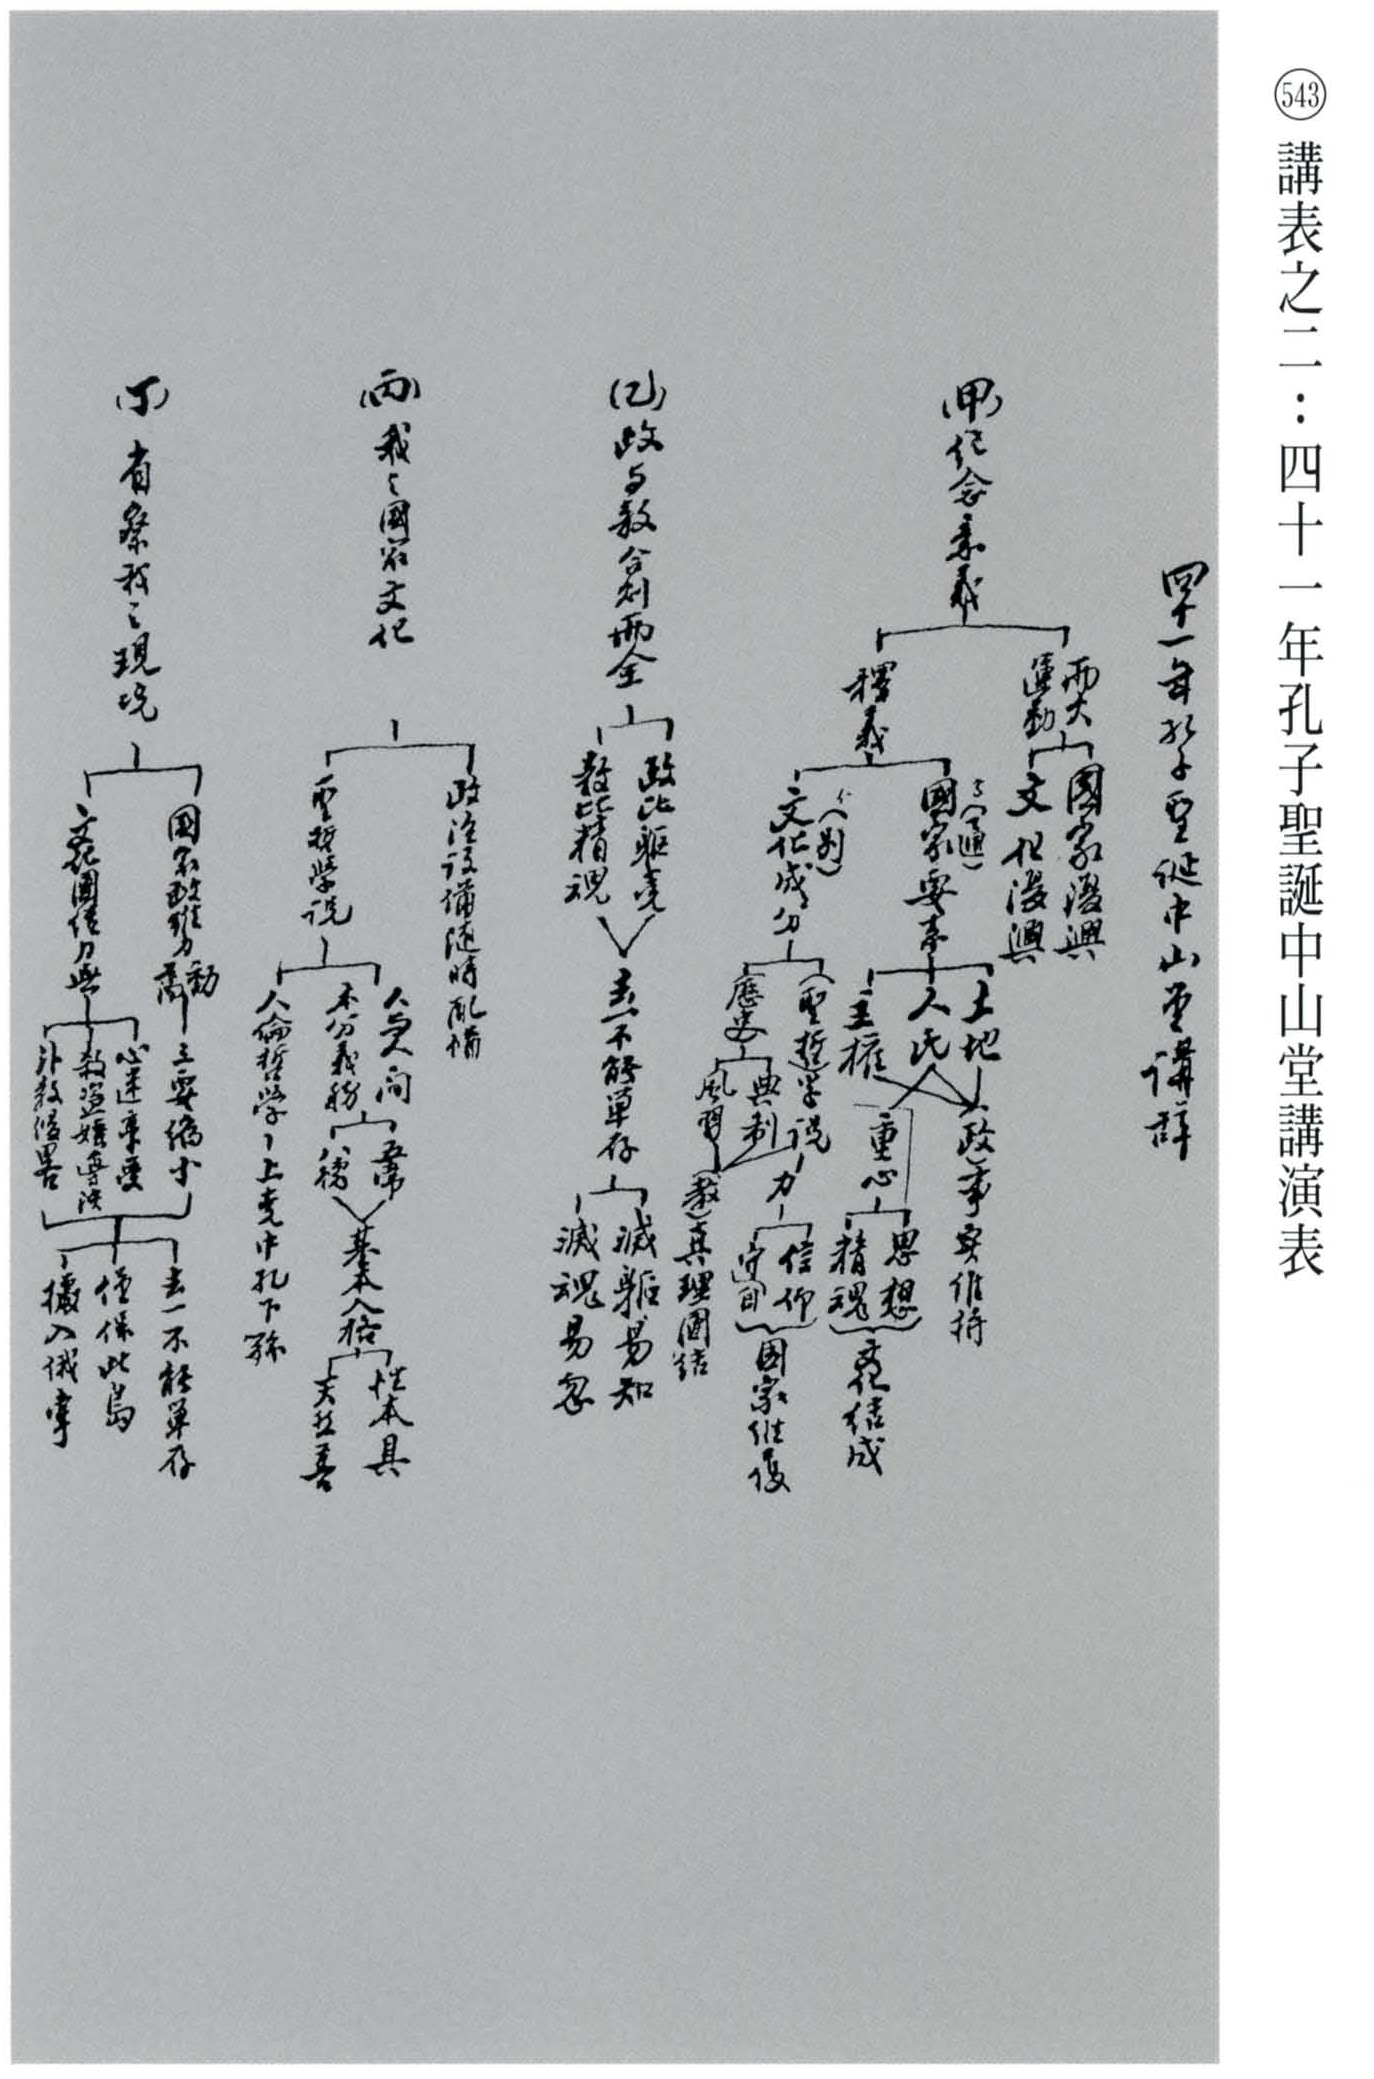 543 講表之二：四十一年孔子聖誕中山堂講演表
四十一年孔子聖誕中山堂講辭
(甲)紀念意義
兩大運動
國家復興
文化復興
釋義
國家要素
(通)
土地
人民
主權
(政)事實維持
重心
思想
精魂
文化結成
文化成分
(別)
聖哲學說
歷史
典制
風習
力
信仰
國家維復
(教)真理團結
(乙)政与教合則兩全
政比軀壳
教比精魂
去一不能單存
滅軀易知
滅魂易忽
(丙)我之國家文化
政治設備隨時配備
聖哲學說
人与人間
本分義務
五常
八德
基本人格
性本具
天然善
人倫哲學
上堯中孔下孫
(丁)省察我之現況
國家政雖力
三要縮小
文化團結力無
心迷
外教侵畧
去一不能單存
僅保此島
攘入俄掌